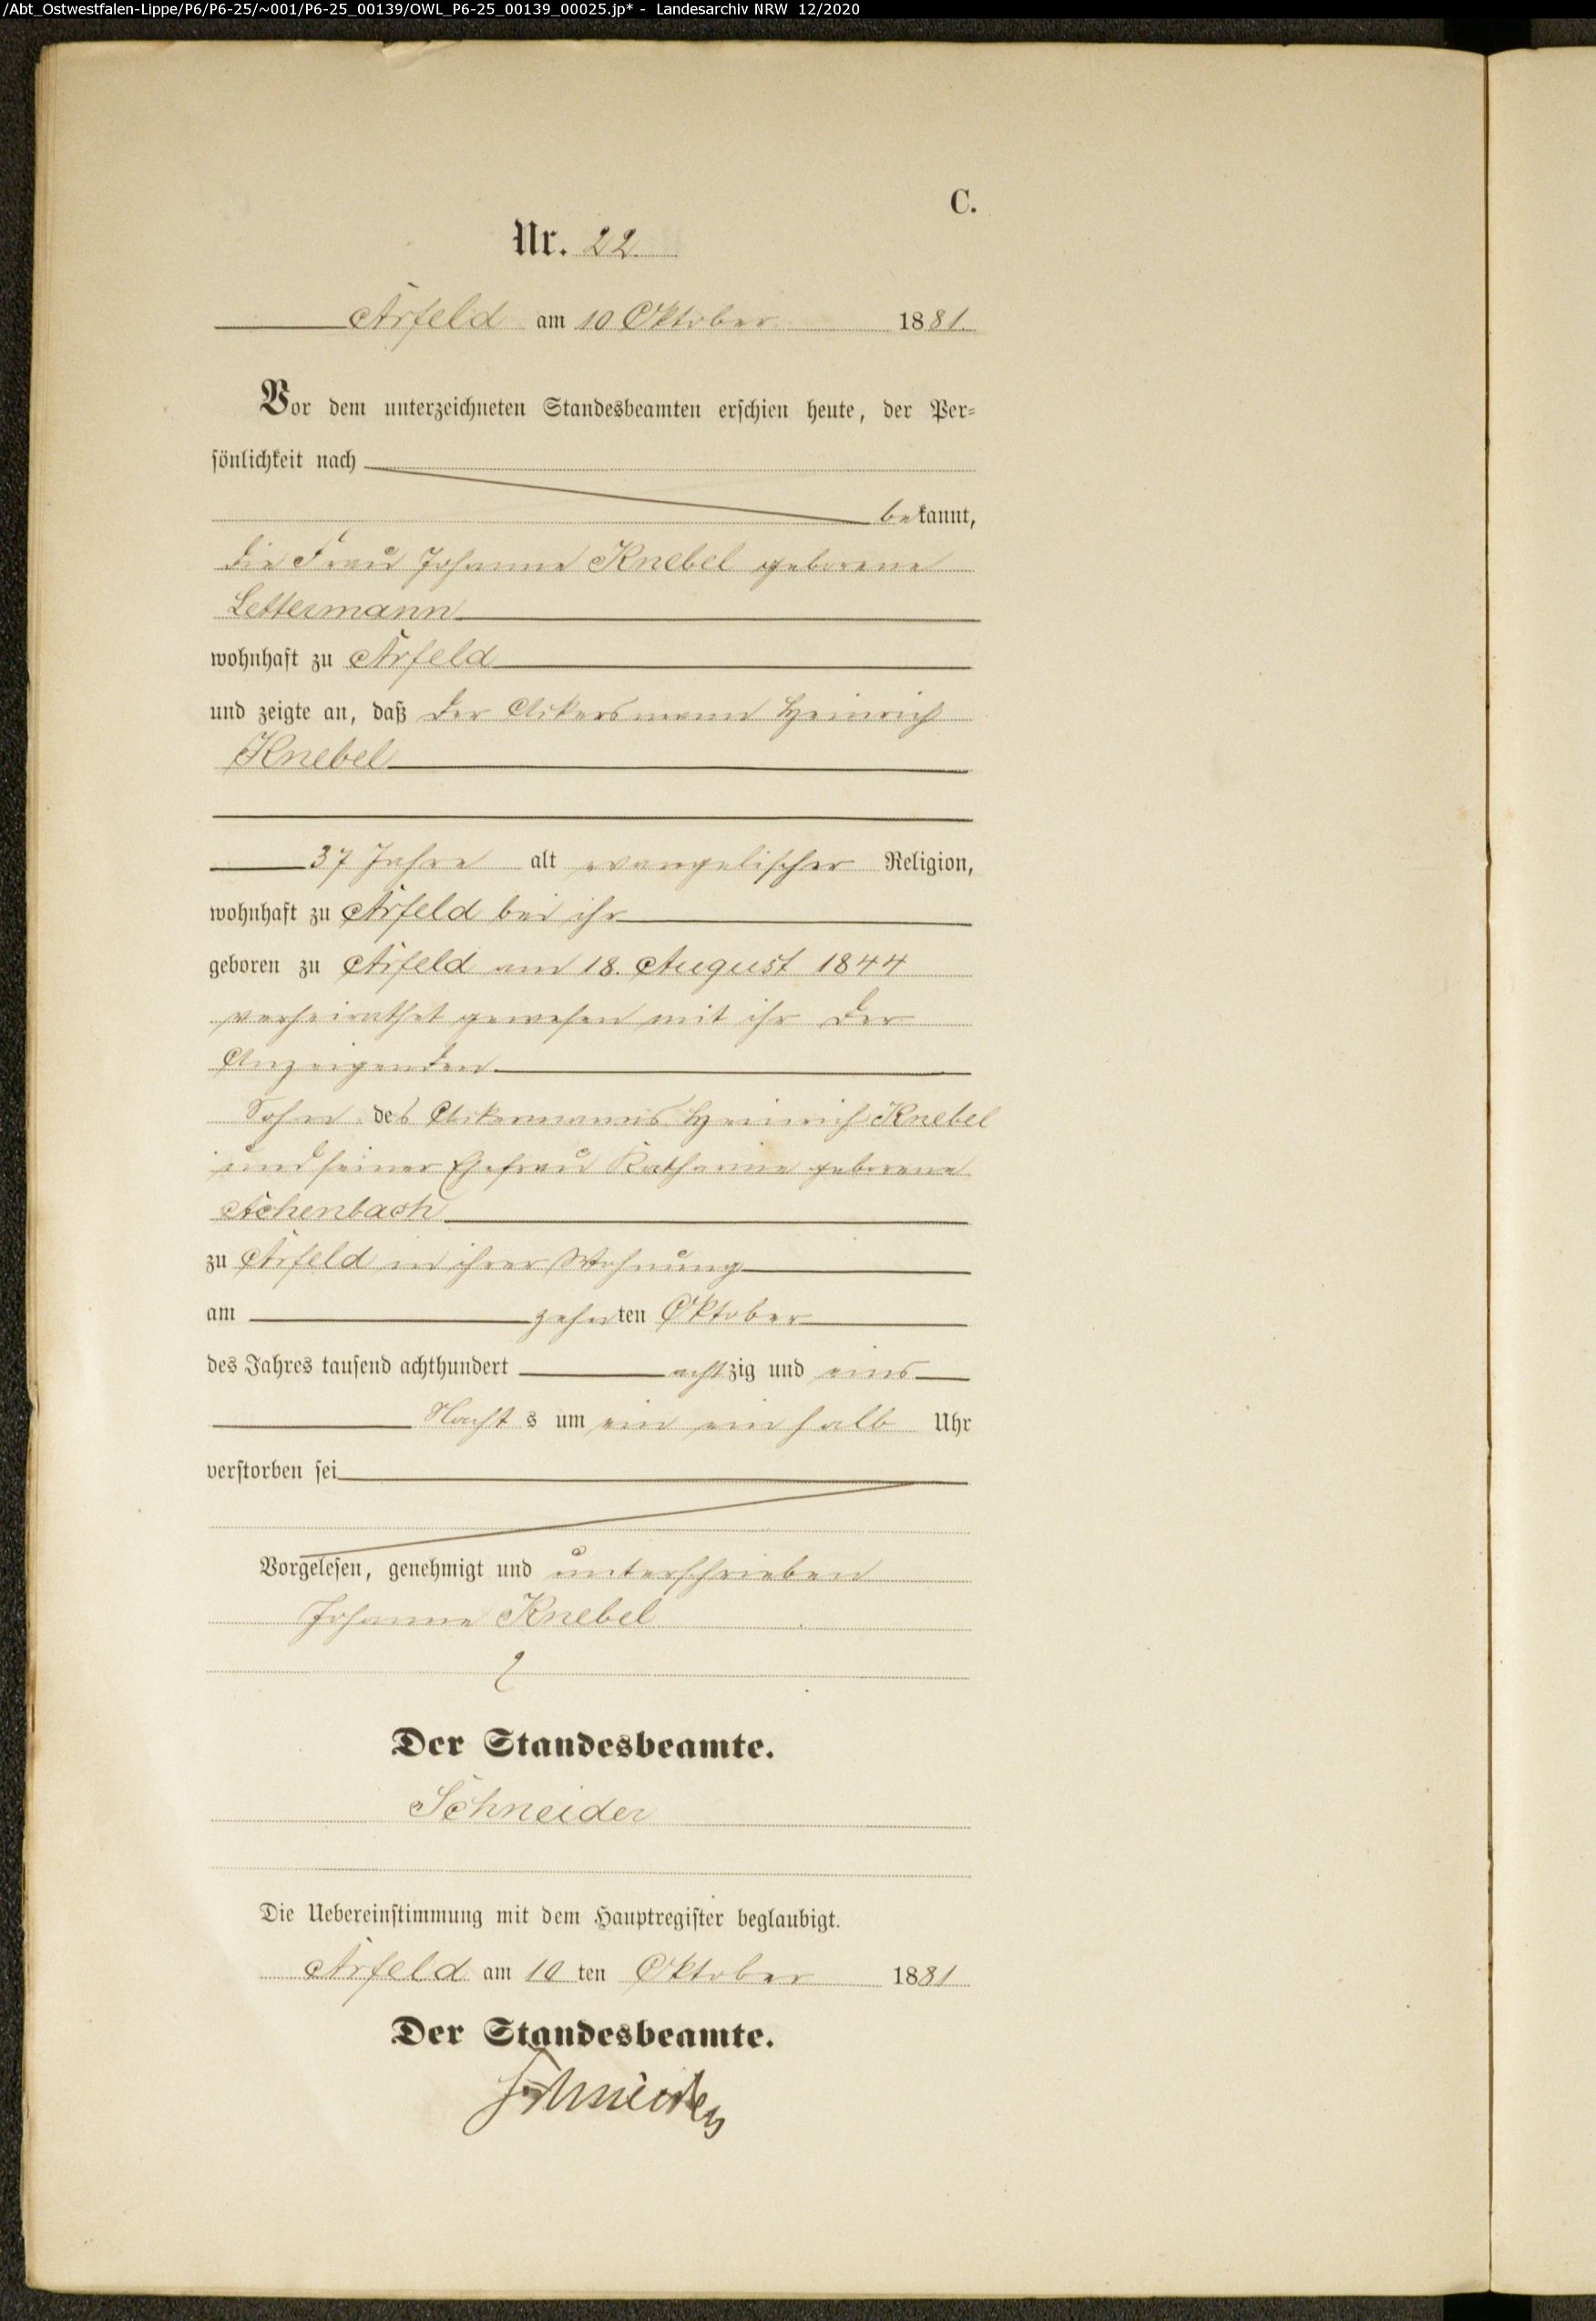 /Abt_Ostwestfalen-Lippe/P6/P6-25/~001/P6-25_00139/OWL_P6-25_00139_00025.jp* - Landesarchiv NRW 12/2020
C.
Nr. 22
Arfeld am 10 Oktober 1881.
Vor dem unterzeichneten Standesbeamten erschien heute, der Per-
sönlichkeit nach
bekannt,
die Frau Johanne Knebel geborene
Lettermann
wohnhaft zu Arfeld
und zeigte an, daß der Akersmann Heinrich
Knebel
37 Jahre alt evangelischer Religion,
wohnhaft zu Arfeld bei ihr
geboren zu Arfeld am 18. August 1844
verheirathet gewesen mit ihr der
Anzeigenden
Sohn des Akermanns Heinrich Knebel
und seiner Ehefrau Katharine geborene
Achenbach
zu Arfeld in ihrer Wohnung
am zehnten Oktober
des Jahres tausend achthundert achtzig und eins
Nachts um ein ein halb Uhr
verstorben sei
Vorgelesen, genehmigt und unterschrieben
Johanne Knebel
Der Standesbeamte.
Schneider
Die Uebereinstimmung mit dem Hauptregister beglaubigt.
Arfeld am 10 ten Oktober 1881
Der Standesbeamte.
Schneider